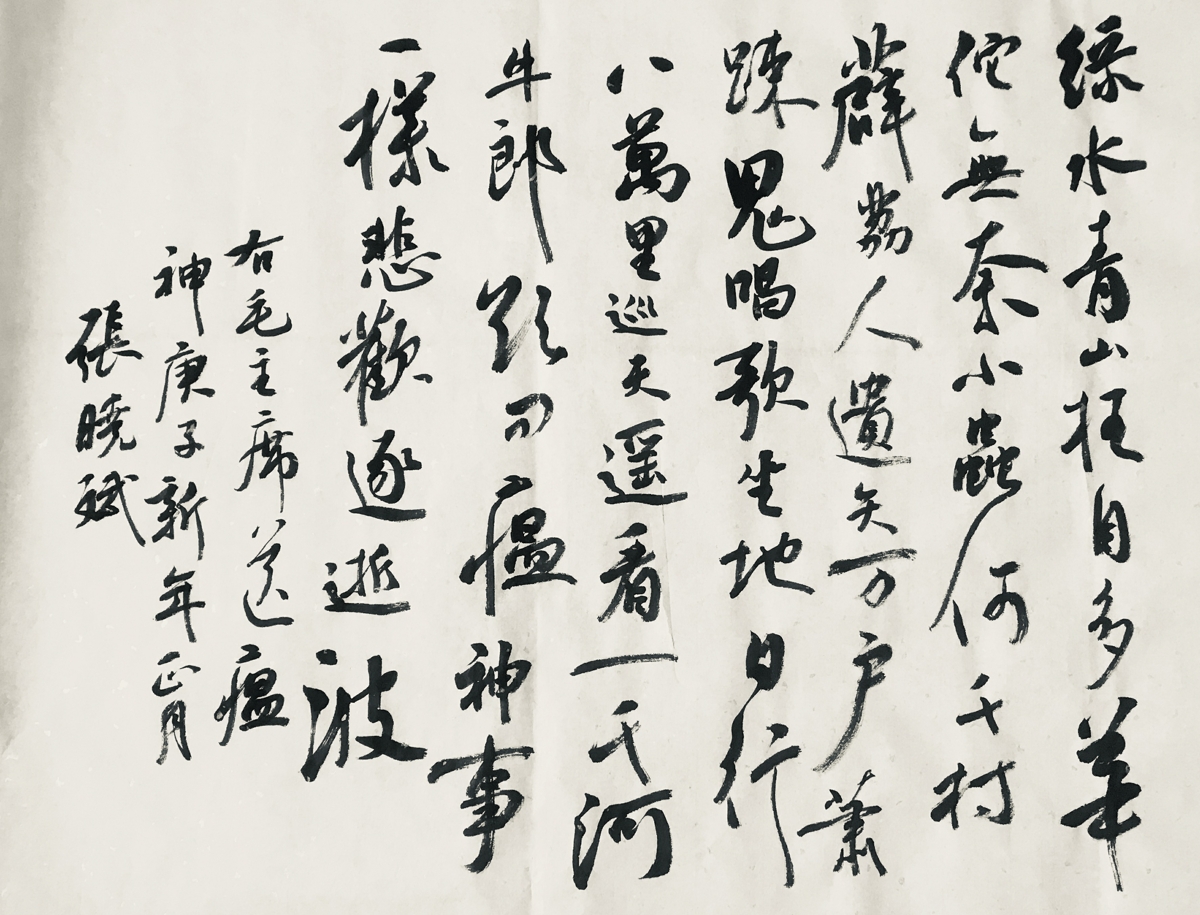 綠水青山枉自多華
佗無奈小蟲何千村
薜荔人遺矢万户蕭
踈鬼唱歌坐地日行
八萬里巡天遥看一千河
牛郎欲问瘟神事
一樣悲歡逐逝波
右毛主席送瘟
神庚子新年正月
張曉斌